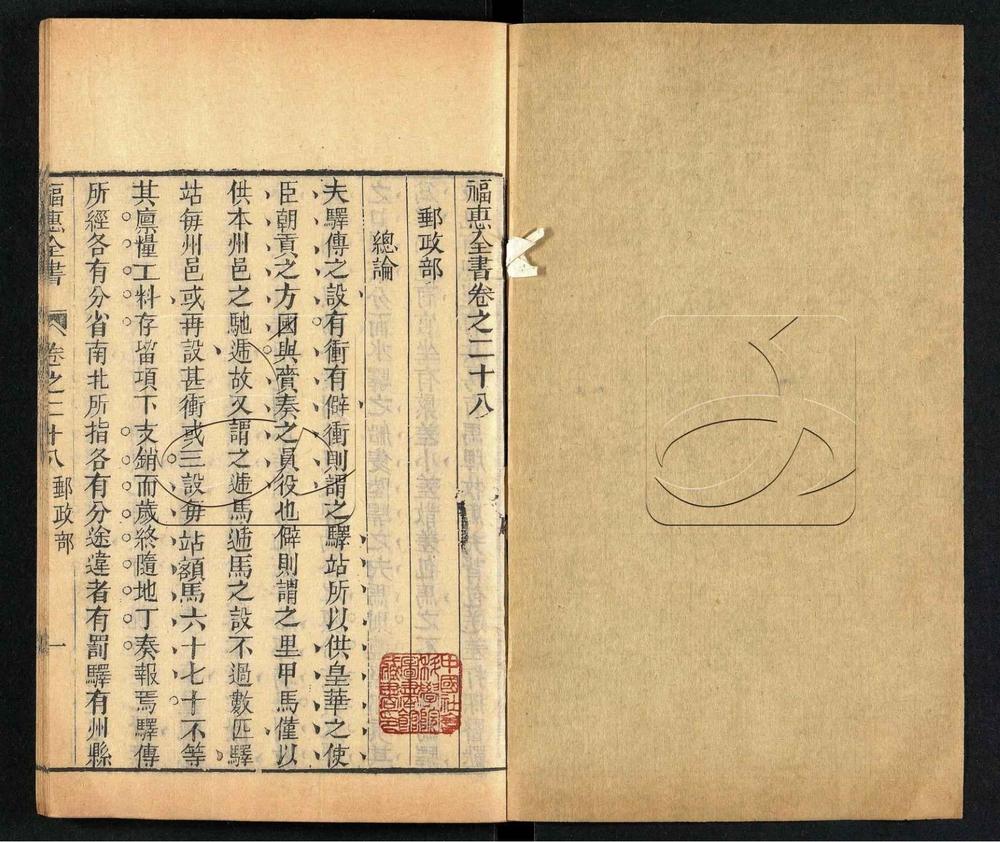 福惠全書卷之二十八
郵政部
總論
夫驛傳之設有衝有僻衝則謂之驛站所以供皇華之使
臣朝貢之方國與賫奏之員役也僻則謂之里甲馬僅以
供本州邑之馳遞故又謂之遞馬遞馬之設不過數匹驛
站每州邑或再設甚衝或三設每站額馬六十七十不等
其廪糧工料存留項下支銷而歲終隨地丁奏報焉驛傳
所經各有分省南北所指各有分途違者有罰驛有州縣
福惠全書 卷之二十八 郵政部 一
中國社會
科學院
圖書館
藏書